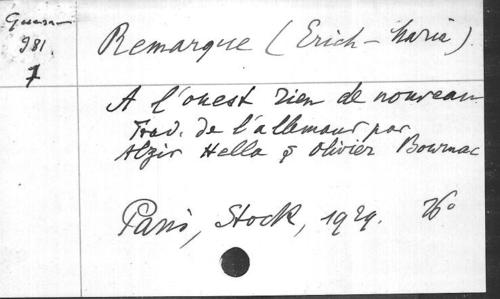 Guerre
981
7
Remarque (Erich-Maria)
A l'ouest rien de nouveau
Trad. de l'allemand par
Alzir Hella & Olivier Bournac
Paris, Stock, 1929. 16°